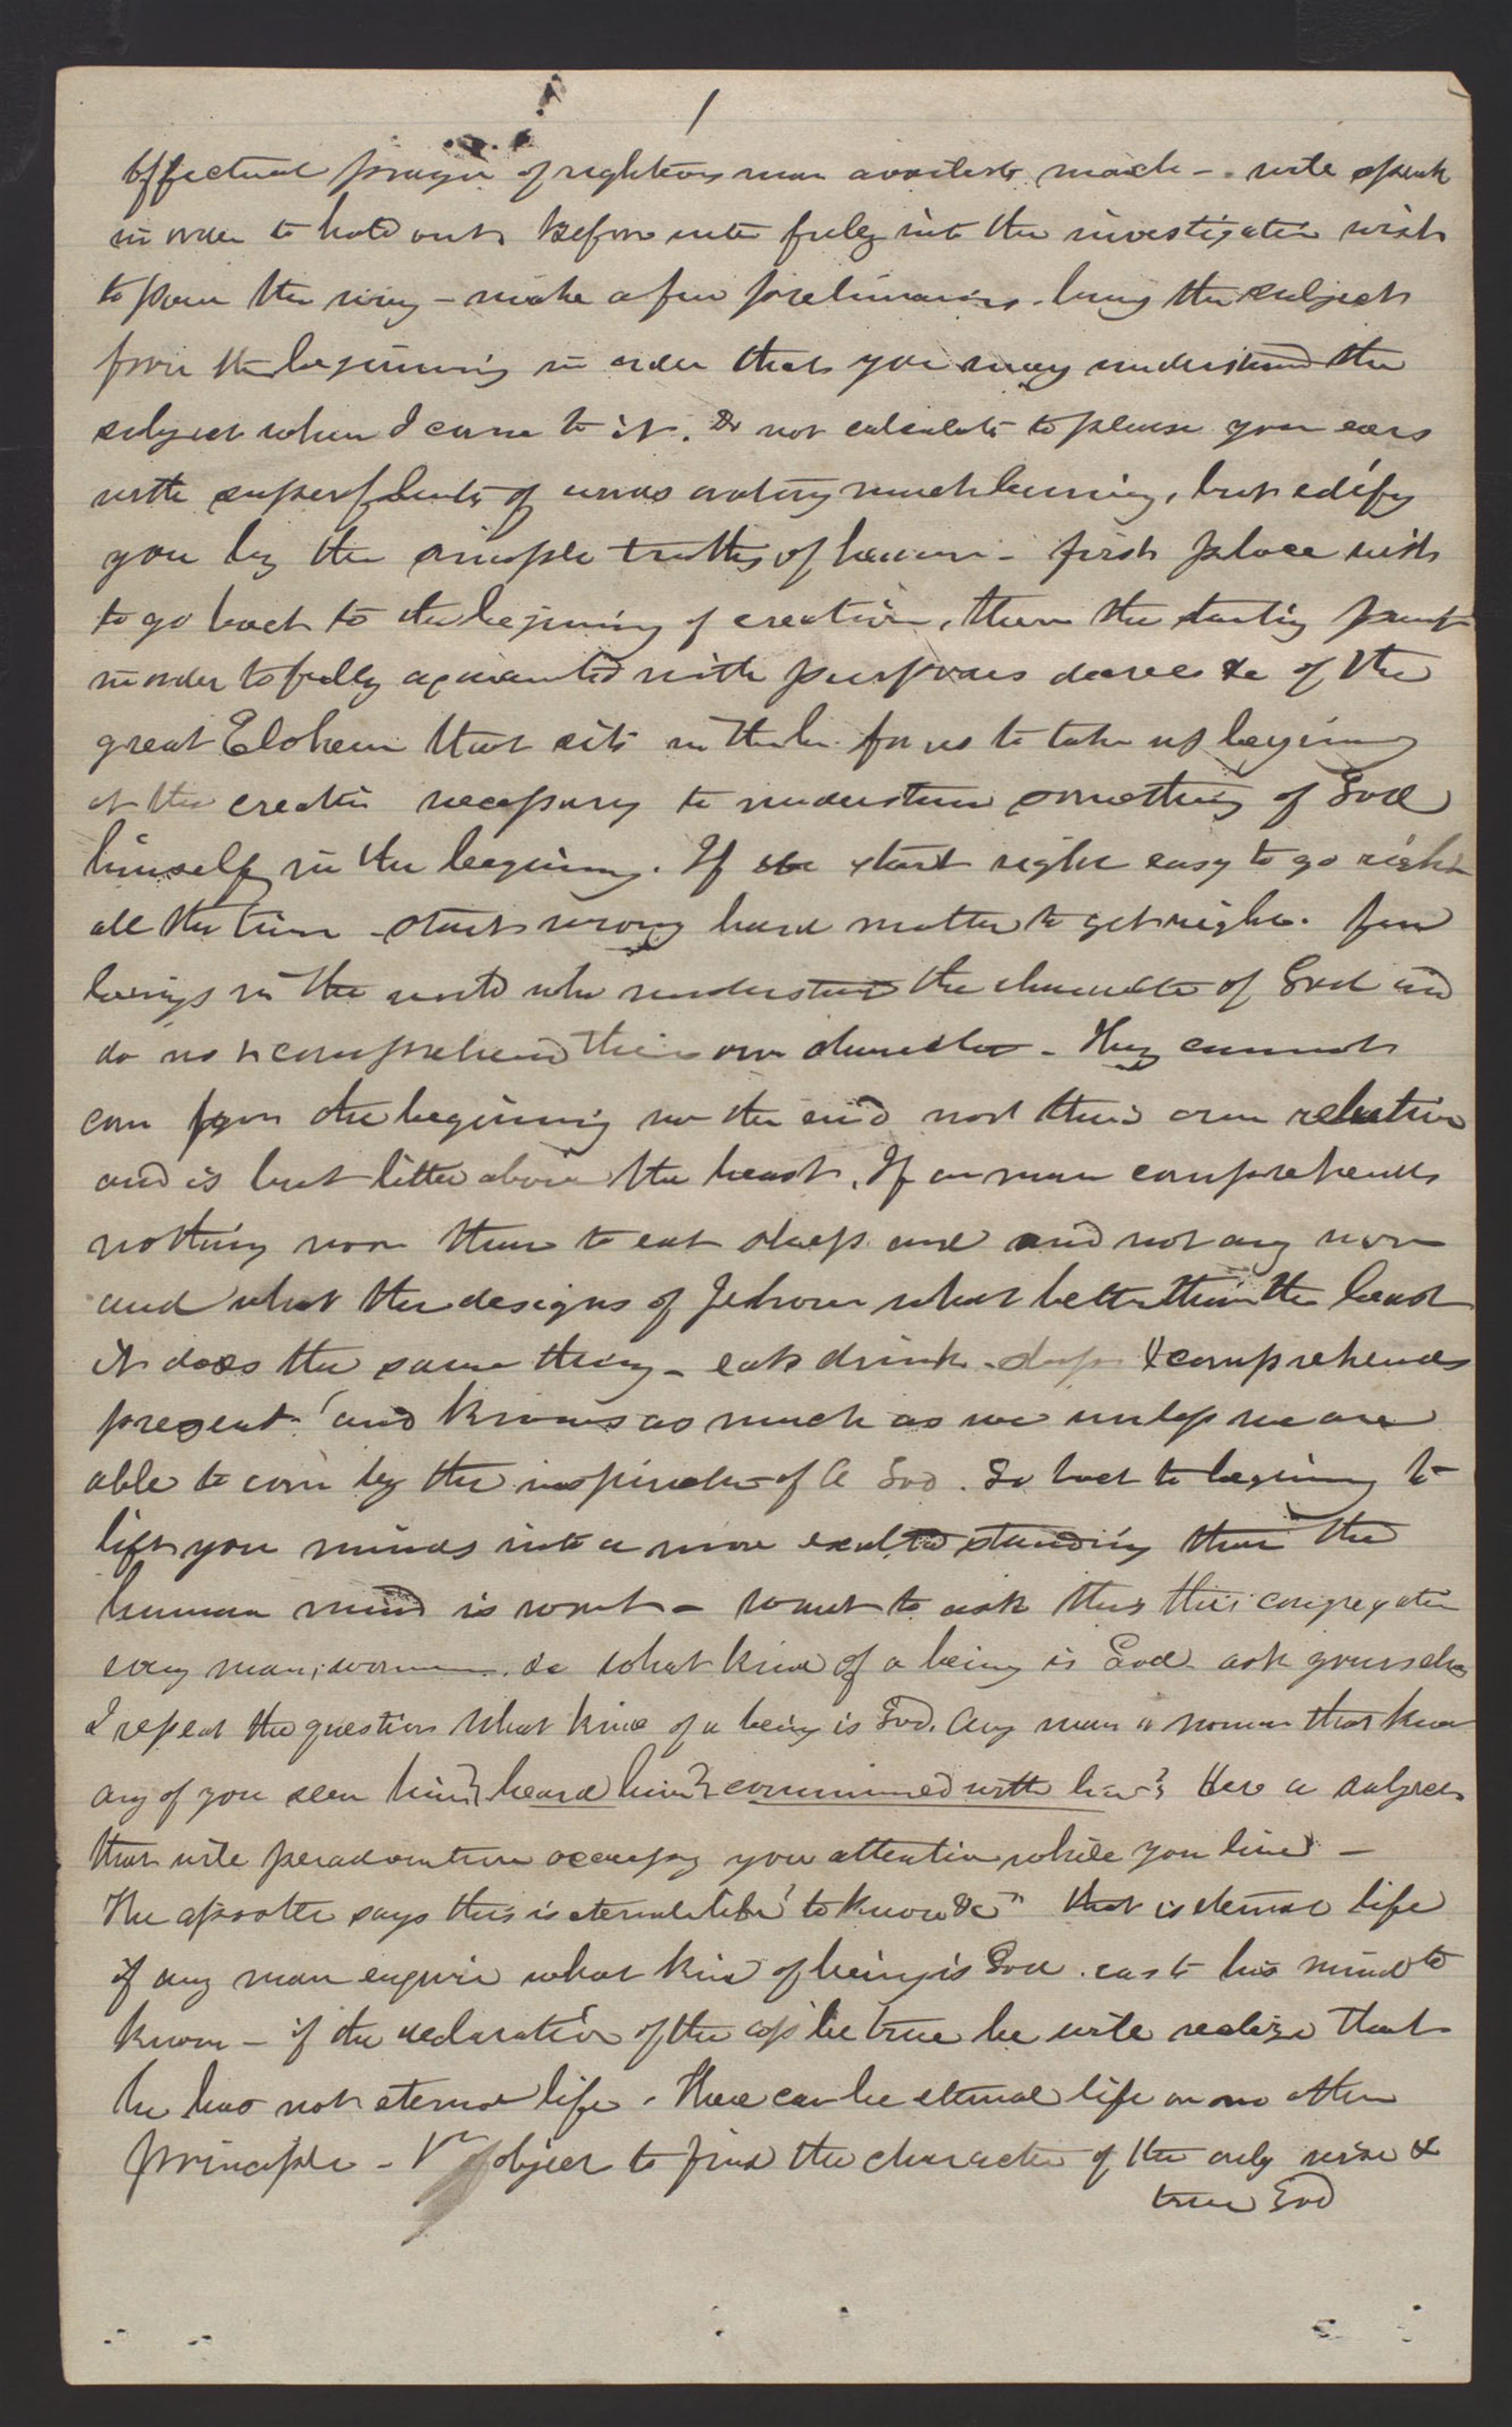 1
Effectual prayer of righteous man availeth much - will speak
in order to hold out. Before enter fully into the investigation wish
to pave the way - make a few preliminaries. bring the subject
from the beginning in order that you may understand the
subject when I come to it. do not calculate to please your ears
with superfluity of words oratory much learning, but edify
you by the simple truths of heaven - first place wish
to go back to the begining of creation, there the starting point
in order to fully acquainted with purposes decrees &c of the
great Eloheim that sits in the h. for us to take up begining
at the creation necessary to understand something of God
himself in the begining. If we start right easy to go right
all the time - start wrong hard matter to get right. few
beings in the world who understand the character of God and
do not comprehend their own character - They cannot
com from the beginning nor the end nor their own relation
and is but little above the beast. If a man comprehends
nothing more than to eat sleep and and not any more
and what the designs of Jehovah what better than the beast
it does the same thing - eats drinks - sleeps & comprehends
present. and knows as much as we unless we are
able to com by the inspiration of A God. Go back to begining to
lift your minds into a more exalted standing than the
human mind is wont - want to ask this this congregation
every man, woman &c what kind of a being is God ask yourselves
I repeat the question What kind of a being is God. Any man or woman that know
any of you seen him? heard him? communed with him? Here a subject
that will peradventure occupy your attention while you live -
The apostle says this is eternal life "to know &c" that is eternal life
if any man enquire what kind of being is God. cast his mind to
know - if the declaration of the ap be true he will realize that
he has not eternal life. There can be eternal life on no other
principle - 1st object to find the character of the only wise &
true God